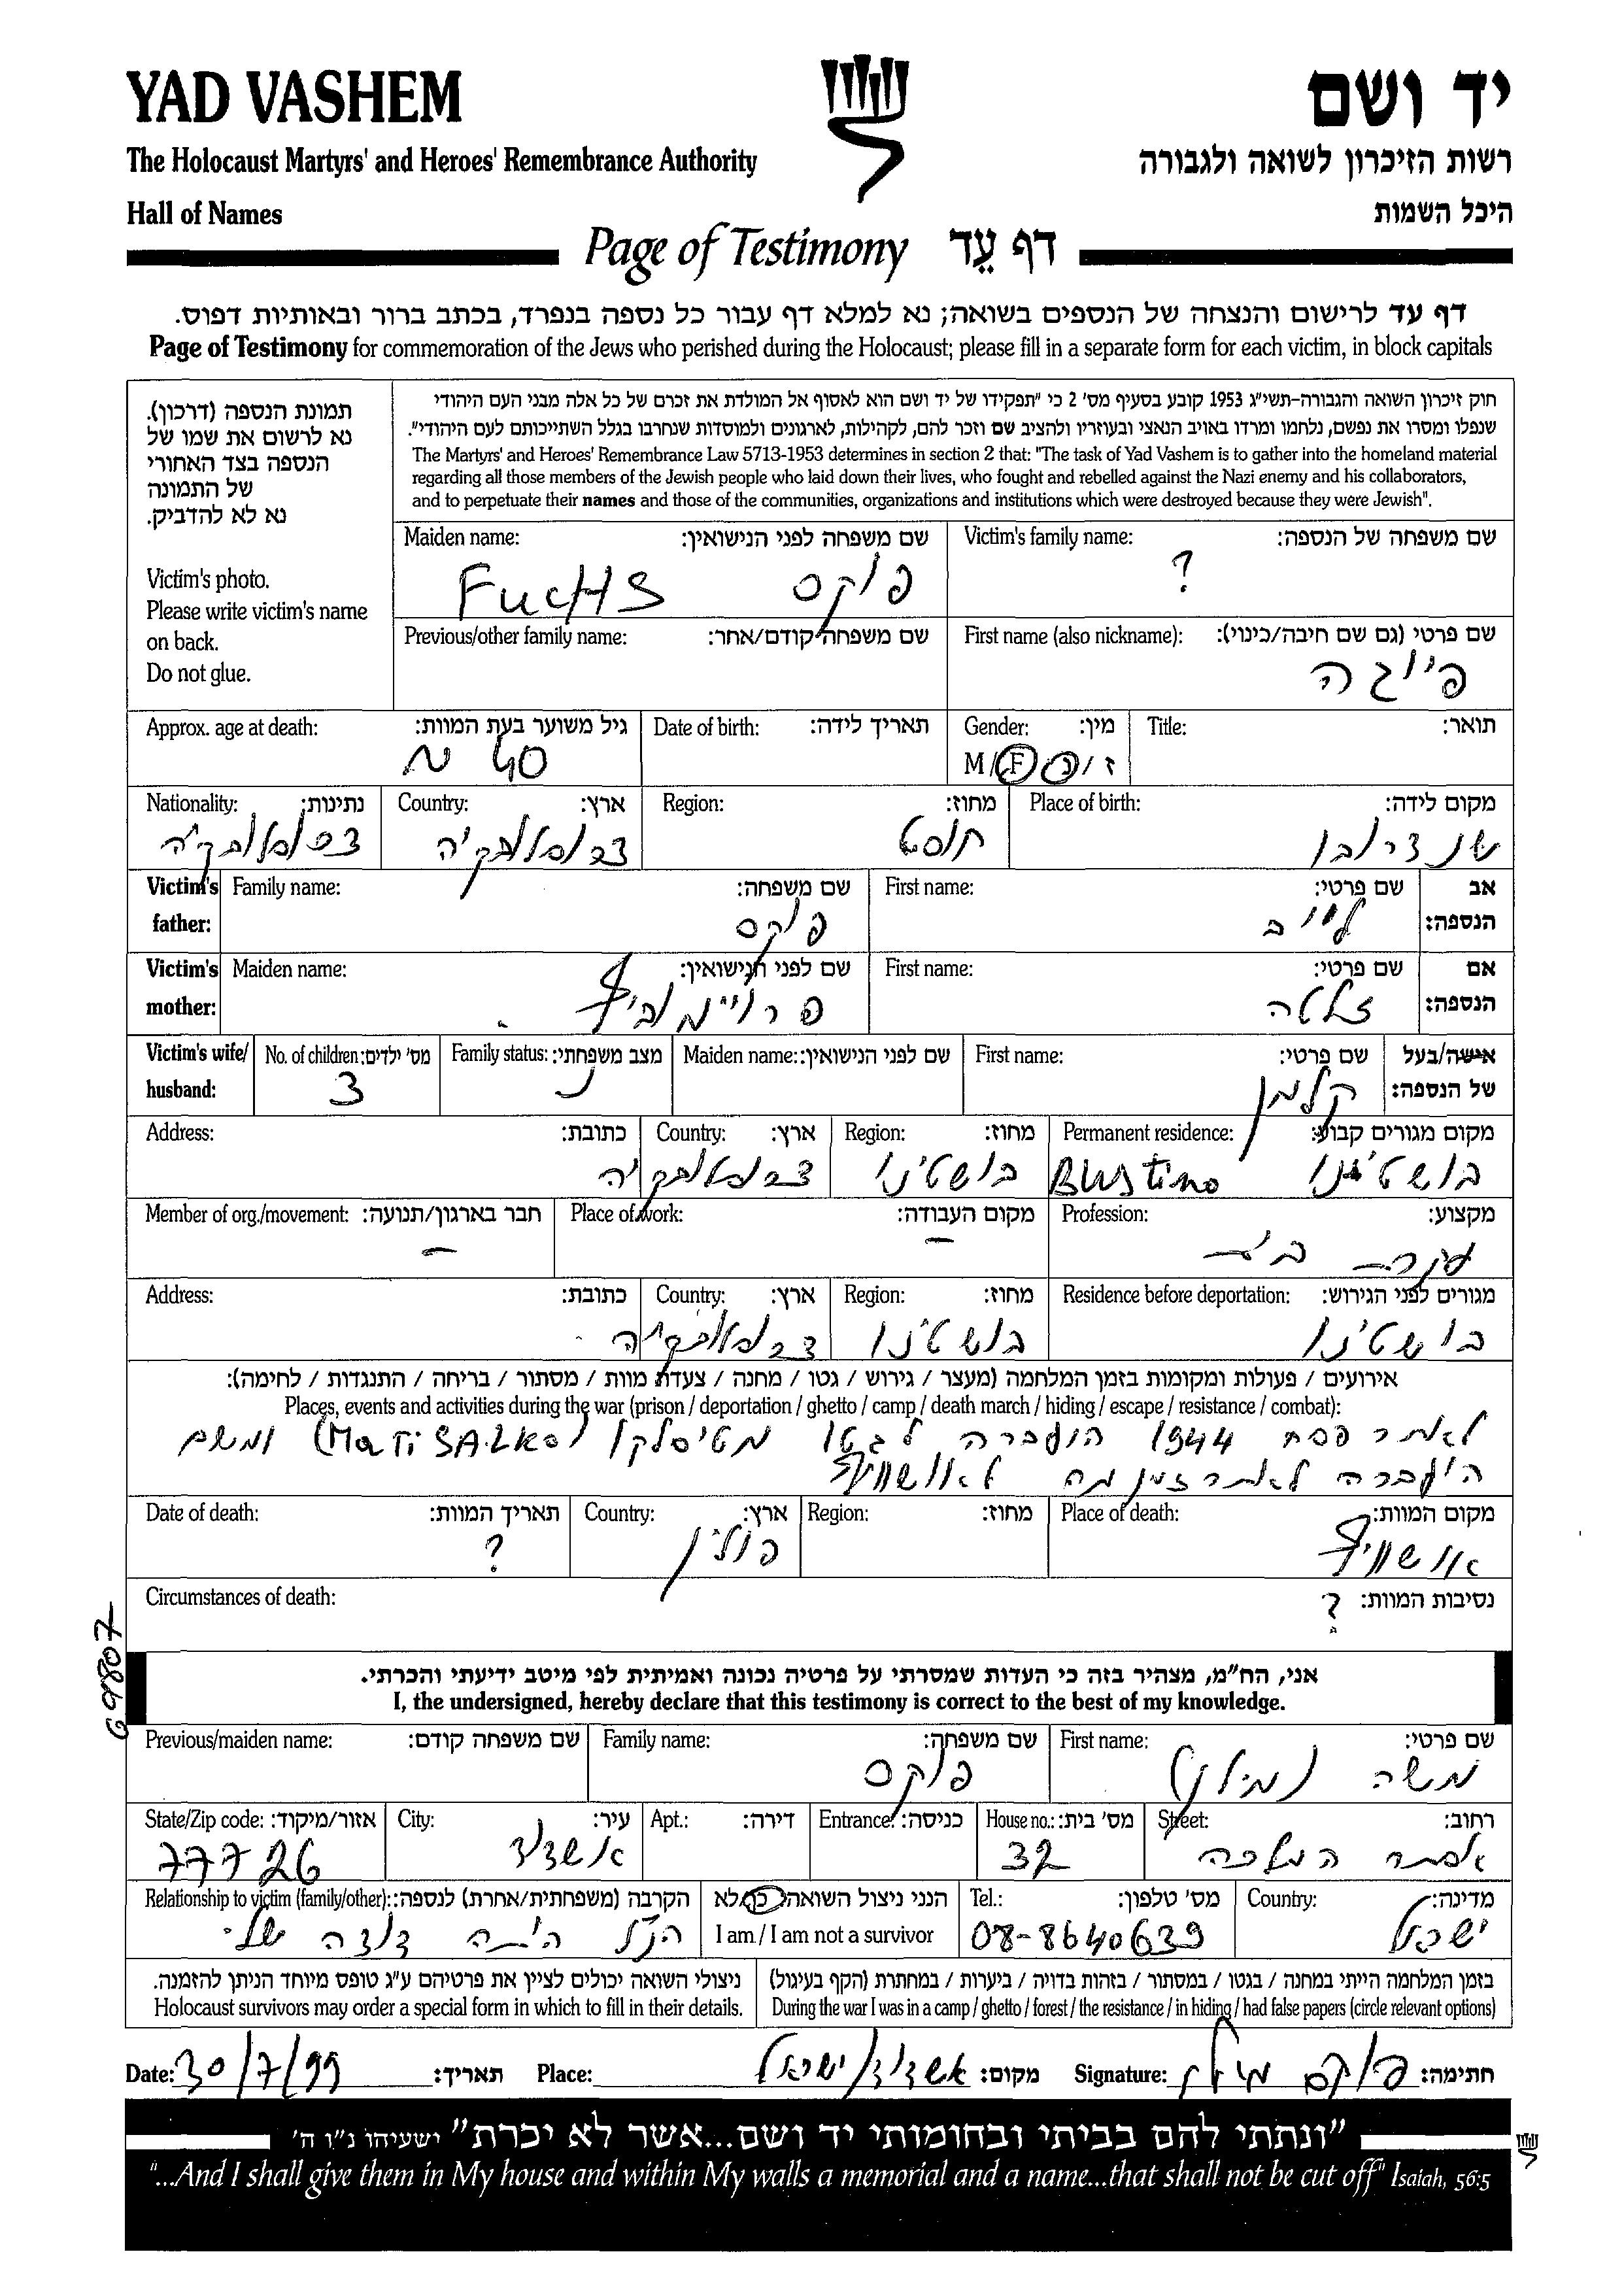 YAD VASHEM
יד ושם
The Holocaust Martyrs' and Heroes' Remembrance Authority
רשות הזיכרון לשואה ולגבורה
Hall of Names
היכל השמות
Page of Testimony דף עֵד
דף עד לרישום והנצחה של הנספים בשואה; נא למלא דף עבור כל נספה בנפרד, בכתב ברור ובאותיות דפוס.
Page of Testimony for commemoration of the Jews who perished during the Holocaust; please fill in a separate form for each victim, in block capitals
תמונת הנספה (דרכון).
נא לרשום את שמו של
הנספה בצד האחורי
של התמונה
נא לא להדביק.
Victim's photo.
Please write victim's name
on back.
Do not glue.
חוק זיכרון השואה והגבורה-תשי"ג 1953 קובע בסעיף מס' 2 כי "תפקידו של יד ושם הוא לאסוף אל המולדת את זכרם של כל אלה מבני העם היהודי
שנפלו ומסרו את נפשם, נלחמו ומרדו באויב הנאצי ובעוזריו ולהציב שם וזכר להם, לקהילות, לארגונים ולמוסדות שנחרבו בגלל השתייכותם לעם היהודי".
The Martyrs' and Heroes' Remembrance Law 5713-1953 determines in section 2 that: "The task of Yad Vashem is to gather into the homeland material
regarding all those members of the Jewish people who laid down their lives, who fought and rebelled against the Nazi enemy and his collaborators,
and to perpetuate their names and those of the communities, organizations and institutions which were destroyed because they were Jewish".
Maiden name: שם משפחה לפני הנישואין: Victim's family name: שם משפחה של הנספה:
FucHS פוקס ?
Previous/other family name: שם משפחה קודם/אחר: First name (also nickname): שם פרטי (גם שם חיבה/כינוי):
פייגה
Approx. age at death: גיל משוער בעת המוות: Date of birth: תאריך לידה: Gender: מין: Title: תואר:
40 M/F ז/נ
Nationality: נתינות: Country: ארץ: Region: מחוז: Place of birth: מקום לידה:
צכוסלובקיה חוסט
Victim's father: Family name: שם משפחה: First name: שם פרטי: אב הנספה:
פוקס לייב
Victim's mother: Maiden name: שם לפני הנישואין: First name: שם פרטי: אם הנספה:
פרויימוביץ זלטה
Victim's wife/ husband: No. of children: מס' ילדים: Family status: מצב משפחתי: Maiden name: שם לפני הנישואין: First name: שם פרטי: אישה/בעל של הנספה:
3 נ קלמן
Address: כתובת: Country: ארץ: Region: מחוז: Permanent residence: מקום מגורים קבוע:
צכוסלובקיה בושטינו BUStino בושטינו
Member of org./movement: חבר בארגון/תנועה: Place of work: מקום העבודה: Profession: מקצוע:
– – עקרת בית
Address: כתובת: Country: ארץ: Region: מחוז: Residence before deportation: מגורים לפני הגירוש:
צכוסלובקיה בושטינו בושטינו
אירועים / פעולות ומקומות בזמן המלחמה (מעצר / גירוש / גטו / מחנה / צעדת מוות / מסתור / בריחה / התנגדות / לחימה):
Places, events and activities during the war (prison / deportation / ghetto / camp / death march / hiding / escape / resistance / combat):
לאחר פסח 1944 הועברה לגטו מטיסלקו (MatiSALKo) ומשם
הועברה לאחר זמן מה לאושוויץ
Date of death: תאריך המוות: Country: ארץ: Region: מחוז: Place of death: מקום המוות:
? פולין אושוויץ
Circumstances of death: נסיבות המוות:
?
69807
אני, הח"מ, מצהיר בזה כי העדות שמסרתי על פרטיה נכונה ואמיתית לפי מיטב ידיעתי והכרתי.
I, the undersigned, hereby declare that this testimony is correct to the best of my knowledge.
Previous/maiden name: שם משפחה קודם: Family name: שם משפחה: First name: שם פרטי:
פוקס משה (מילן)
State/Zip code: אזור/מיקוד: City: עיר: Apt.: דירה: Entrance: כניסה: House no.: מס' בית: Street: רחוב:
77726 אשדוד 32 אסתר המלכה
Relationship to victim (family/other): הקרבה (משפחתית/אחרת) לנספה: הנני ניצול השואה כן/לא Tel.: מס' טלפון: Country: מדינה:
הנ"ל היתה דודה שלי I am / I am not a survivor 08-8640639 ישראל
ניצולי השואה יכולים לציין את פרטיהם ע"ג טופס מיוחד הניתן להזמנה. בזמן המלחמה הייתי במחנה / בגטו / במסתור / בזהות בדויה / ביערות / במחתרת (הקף בעיגול)
Holocaust survivors may order a special form in which to fill in their details. During the war I was in a camp / ghetto / forest / the resistance / in hiding / had false papers (circle relevant options)
Date: 30/7/99 תאריך: Place: אשדוד/ישראל מקום: Signature: פוקס מילן חתימה:
"ונתתי להם בביתי ובחומותי יד ושם...אשר לא יכרת" ישעיהו נ"ו ה'
"...And I shall give them in My house and within My walls a memorial and a name...that shall not be cut off" Isaiah, 56:5